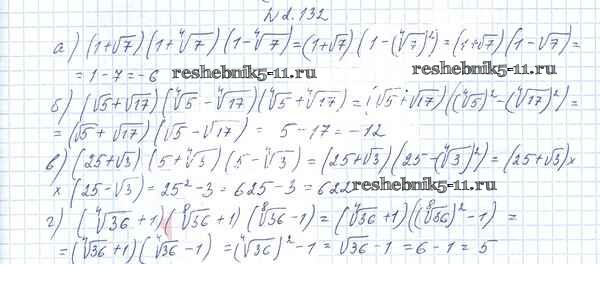 № 2.132
а) (1+√7)(1+⁴√7)(1-⁴√7)=(1+√7)(1-(⁴√7)²)=(1+√7)(1-√7)=
=1-7=-6 reshebnik5-11.ru reshebnik5-11.ru
б) (√5+√17)(⁴√5-⁴√17)(⁴√5+⁴√17)=(√5+√17)((⁴√5)²-(⁴√17)²)=
=(√5+√17)(√5-√17)= 5-17=-12
в) (25+√3)(5+⁴√3)(5-⁴√3)=(25+√3)(25-(⁴√3)²)=(25+√3)×
×(25-√3)=25²-3=625-3=622 reshebnik5-11.ru
г) (⁴√36+1)(⁸√36+1)(⁸√36-1)=(⁴√36+1)((⁸√36)²-1)=
=(⁴√36+1)(⁴√36-1)=(⁴√36)²-1=√36-1=6-1=5